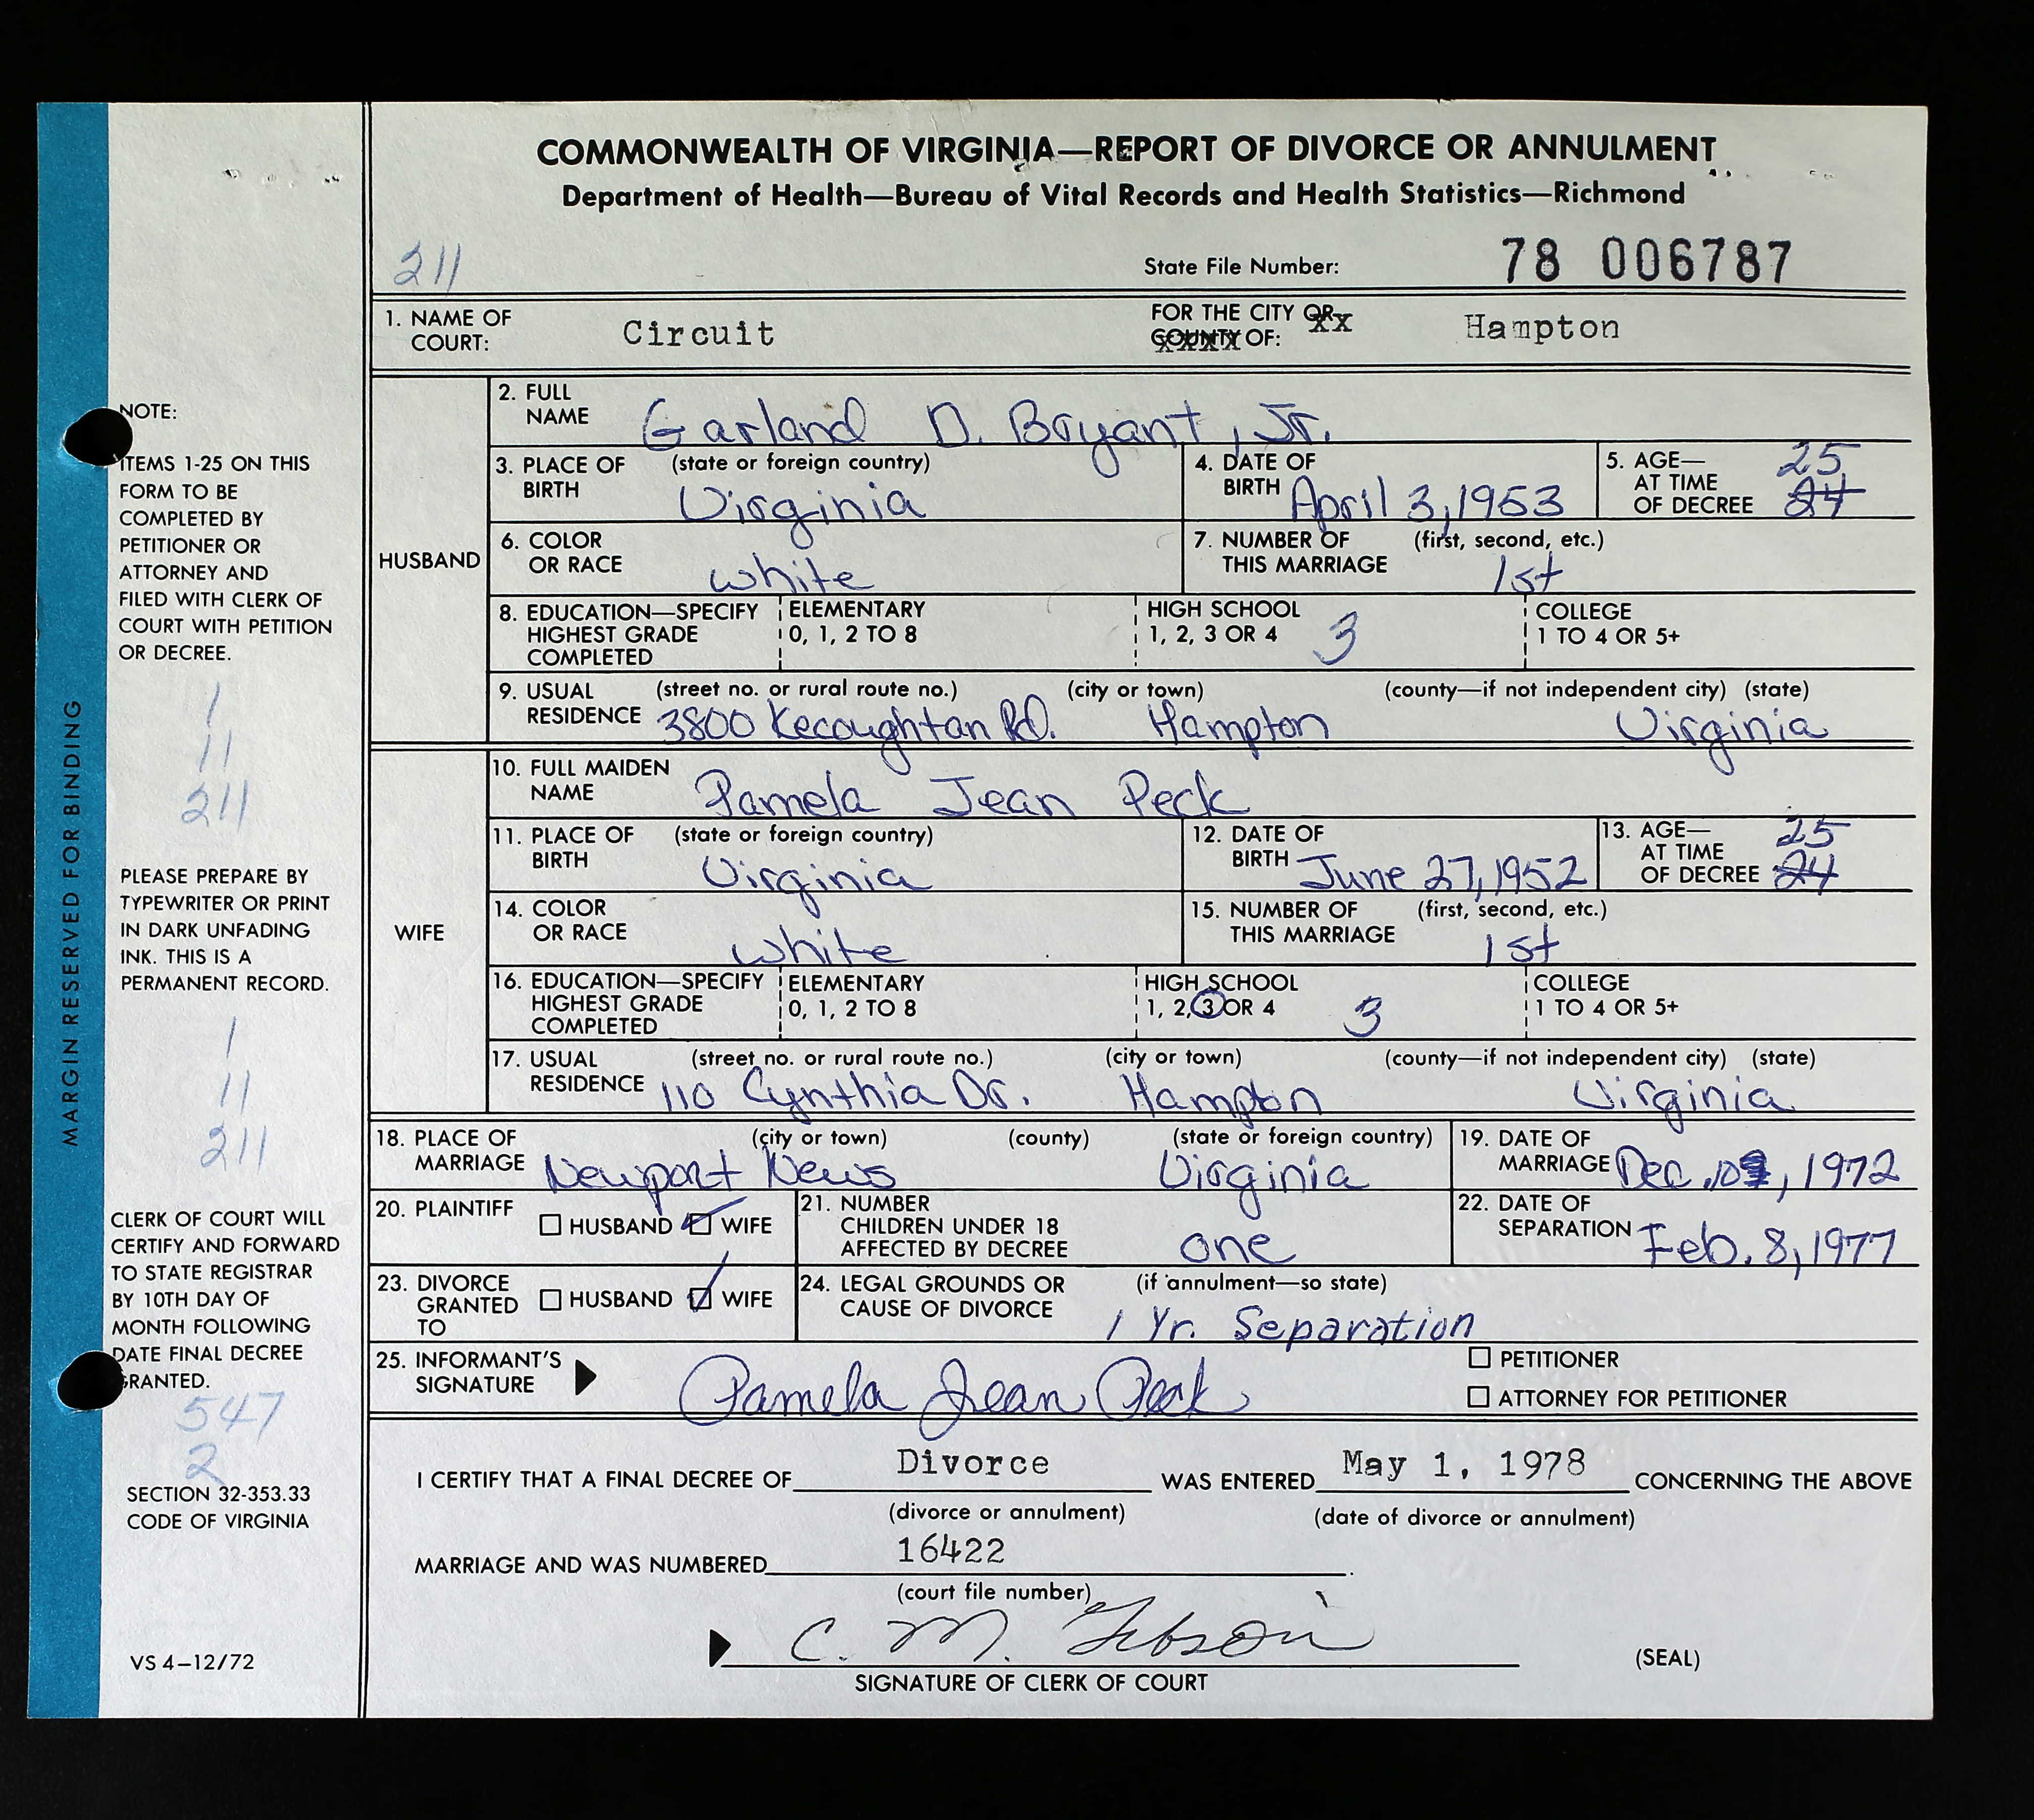 COMMONWEALTH OF VIRGINIA—REPORT OF DIVORCE OR ANNULMENT
Department of Health—Bureau of Vital Records and Health Statistics—Richmond
211
State File Number: 78 006787
1. NAME OF COURT: Circuit FOR THE CITY OR COUNTY OF: Hampton
HUSBAND
2. FULL NAME Garland D. Bryant, Jr.
3. PLACE OF BIRTH (state or foreign country) Virginia
4. DATE OF BIRTH April 3, 1953
5. AGE—AT TIME OF DECREE 25 24
6. COLOR OR RACE white
7. NUMBER OF THIS MARRIAGE (first, second, etc.) 1st
8. EDUCATION—SPECIFY HIGHEST GRADE COMPLETED ELEMENTARY 0, 1, 2 TO 8 HIGH SCHOOL 1, 2, 3 OR 4 3 COLLEGE 1 TO 4 OR 5+
9. USUAL RESIDENCE (street no. or rural route no.) (city or town) (county—if not independent city) (state)
3800 Kecoughtan Rd. Hampton Virginia
WIFE
10. FULL MAIDEN NAME Pamela Jean Peck
11. PLACE OF BIRTH (state or foreign country) Virginia
12. DATE OF BIRTH June 27, 1952
13. AGE—AT TIME OF DECREE 25 24
14. COLOR OR RACE white
15. NUMBER OF THIS MARRIAGE (first, second, etc.) 1st
16. EDUCATION—SPECIFY HIGHEST GRADE COMPLETED ELEMENTARY 0, 1, 2 TO 8 HIGH SCHOOL 1, 2, 3 OR 4 3 COLLEGE 1 TO 4 OR 5+
17. USUAL RESIDENCE (street no. or rural route no.) (city or town) (county—if not independent city) (state)
110 Cynthia Dr. Hampton Virginia
18. PLACE OF MARRIAGE (city or town) (county) (state or foreign country) Newport News Virginia
19. DATE OF MARRIAGE Dec. 1972
20. PLAINTIFF HUSBAND WIFE
21. NUMBER CHILDREN UNDER 18 AFFECTED BY DECREE one
22. DATE OF SEPARATION Feb. 8, 1977
23. DIVORCE GRANTED TO HUSBAND WIFE
24. LEGAL GROUNDS OR CAUSE OF DIVORCE (if annulment—so state) 1 Yr. Separation
25. INFORMANT'S SIGNATURE Pamela Jean Peck
PETITIONER
ATTORNEY FOR PETITIONER
I CERTIFY THAT A FINAL DECREE OF Divorce WAS ENTERED May 1, 1978 CONCERNING THE ABOVE
(divorce or annulment) (date of divorce or annulment)
MARRIAGE AND WAS NUMBERED 16422.
(court file number)
C. M. Gibson
SIGNATURE OF CLERK OF COURT
(SEAL)
MARGIN RESERVED FOR BINDING
NOTE:
ITEMS 1-25 ON THIS
FORM TO BE
COMPLETED BY
PETITIONER OR
ATTORNEY AND
FILED WITH CLERK OF
COURT WITH PETITION
OR DECREE.
1
11
211
PLEASE PREPARE BY
TYPEWRITER OR PRINT
IN DARK UNFADING
INK. THIS IS A
PERMANENT RECORD.
1
11
211
CLERK OF COURT WILL
CERTIFY AND FORWARD
TO STATE REGISTRAR
BY 10TH DAY OF
MONTH FOLLOWING
DATE FINAL DECREE
GRANTED.
547
2
SECTION 32-353.33
CODE OF VIRGINIA
VS 4—12/72